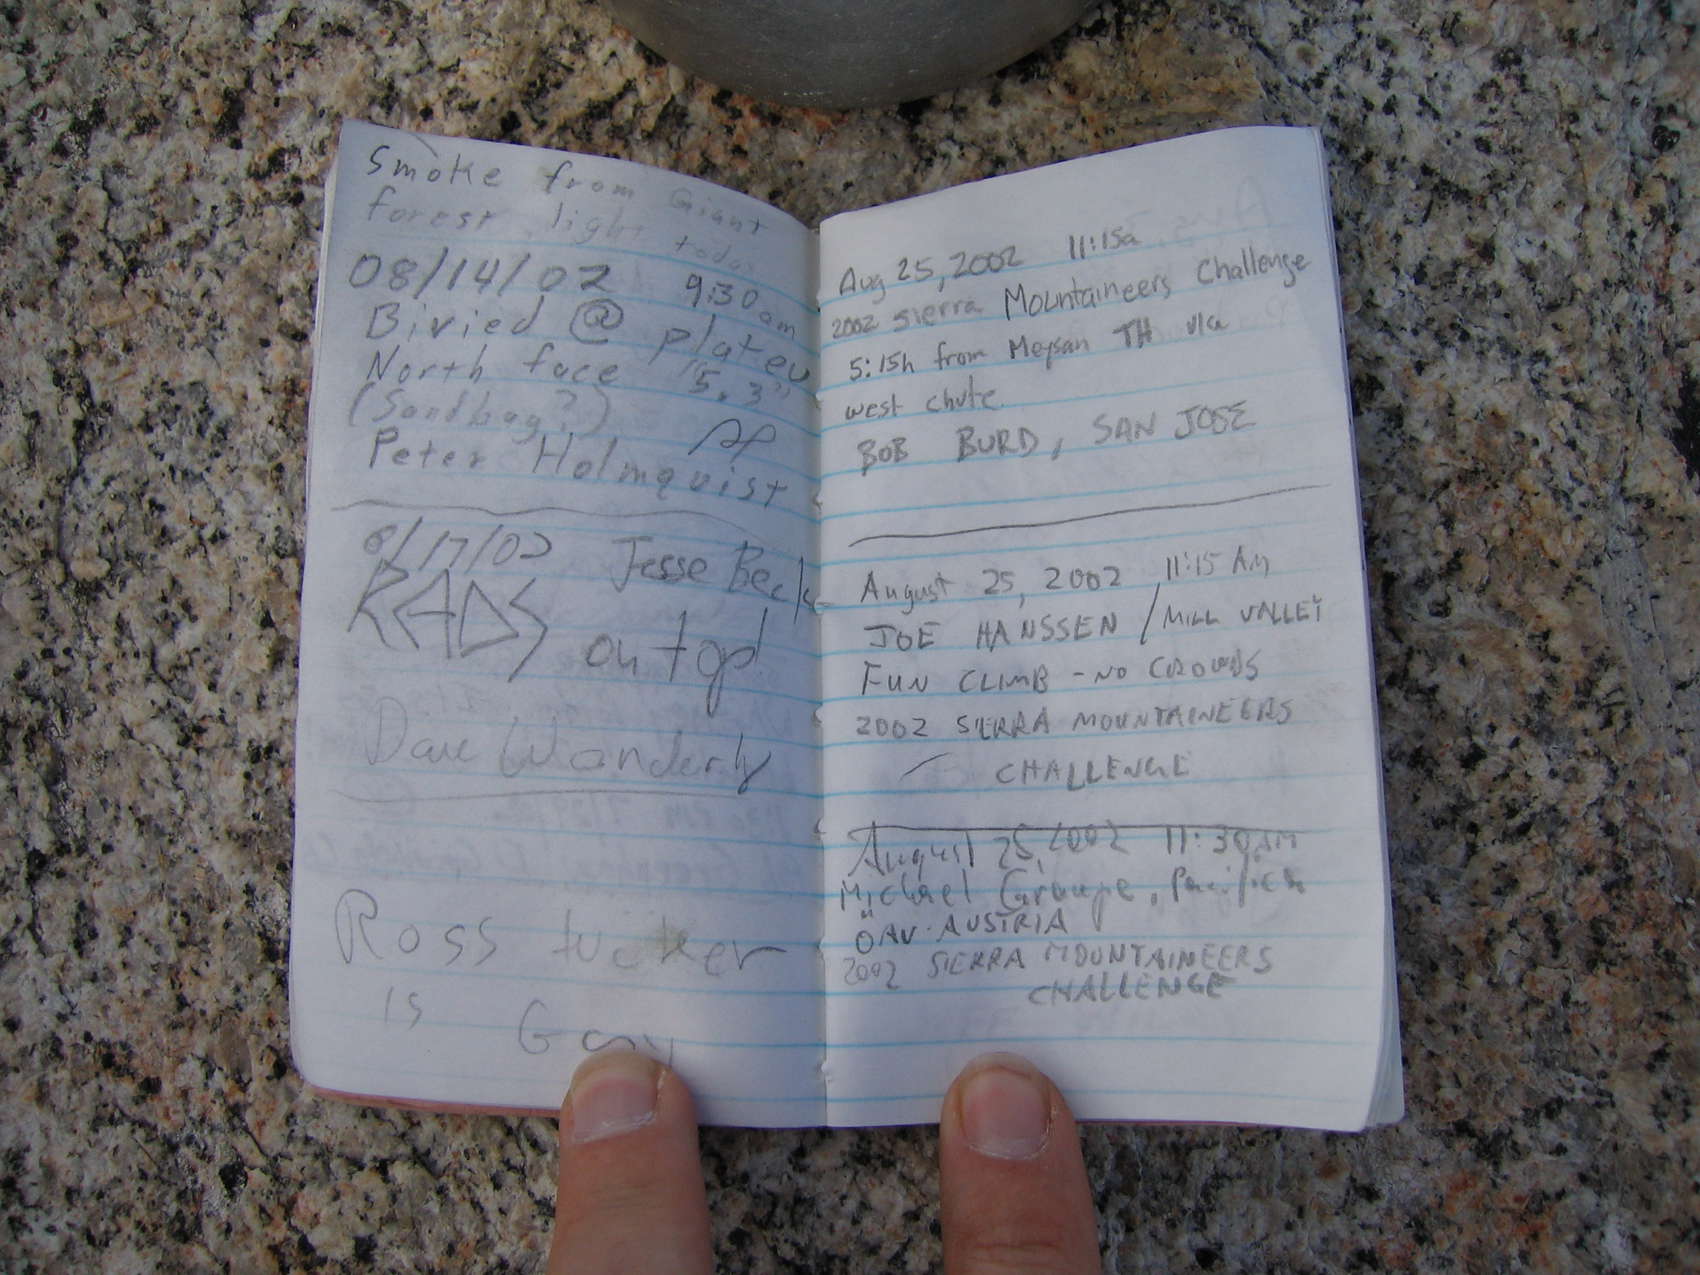 Smoke from Giant
forest light today
08/14/02 9:30am
Bivied @ plateu
North face "5.3"
(Sandbag?)
Peter Holmquist
8/17/02 Jesse Beck
RADS on top!
Dave Wonderly
Ross tucker
is Gay
Aug 25, 2002 11:15a
2002 Sierra Mountaineers Challenge
5:15h from Meysan TH via
west chute
BOB BURD, SAN JOSE
August 25, 2002 11:15 AM
JOE HANSSEN / MILL VALLEY
FUN CLIMB - NO CROWDS
2002 SIERRA MOUNTAINEERS
CHALLENGE
August 25, 2002 11:30AM
Michael Graupe, Pacifica
ÖAV. AUSTRIA
2002 SIERRA MOUNTAINEERS
CHALLENGE